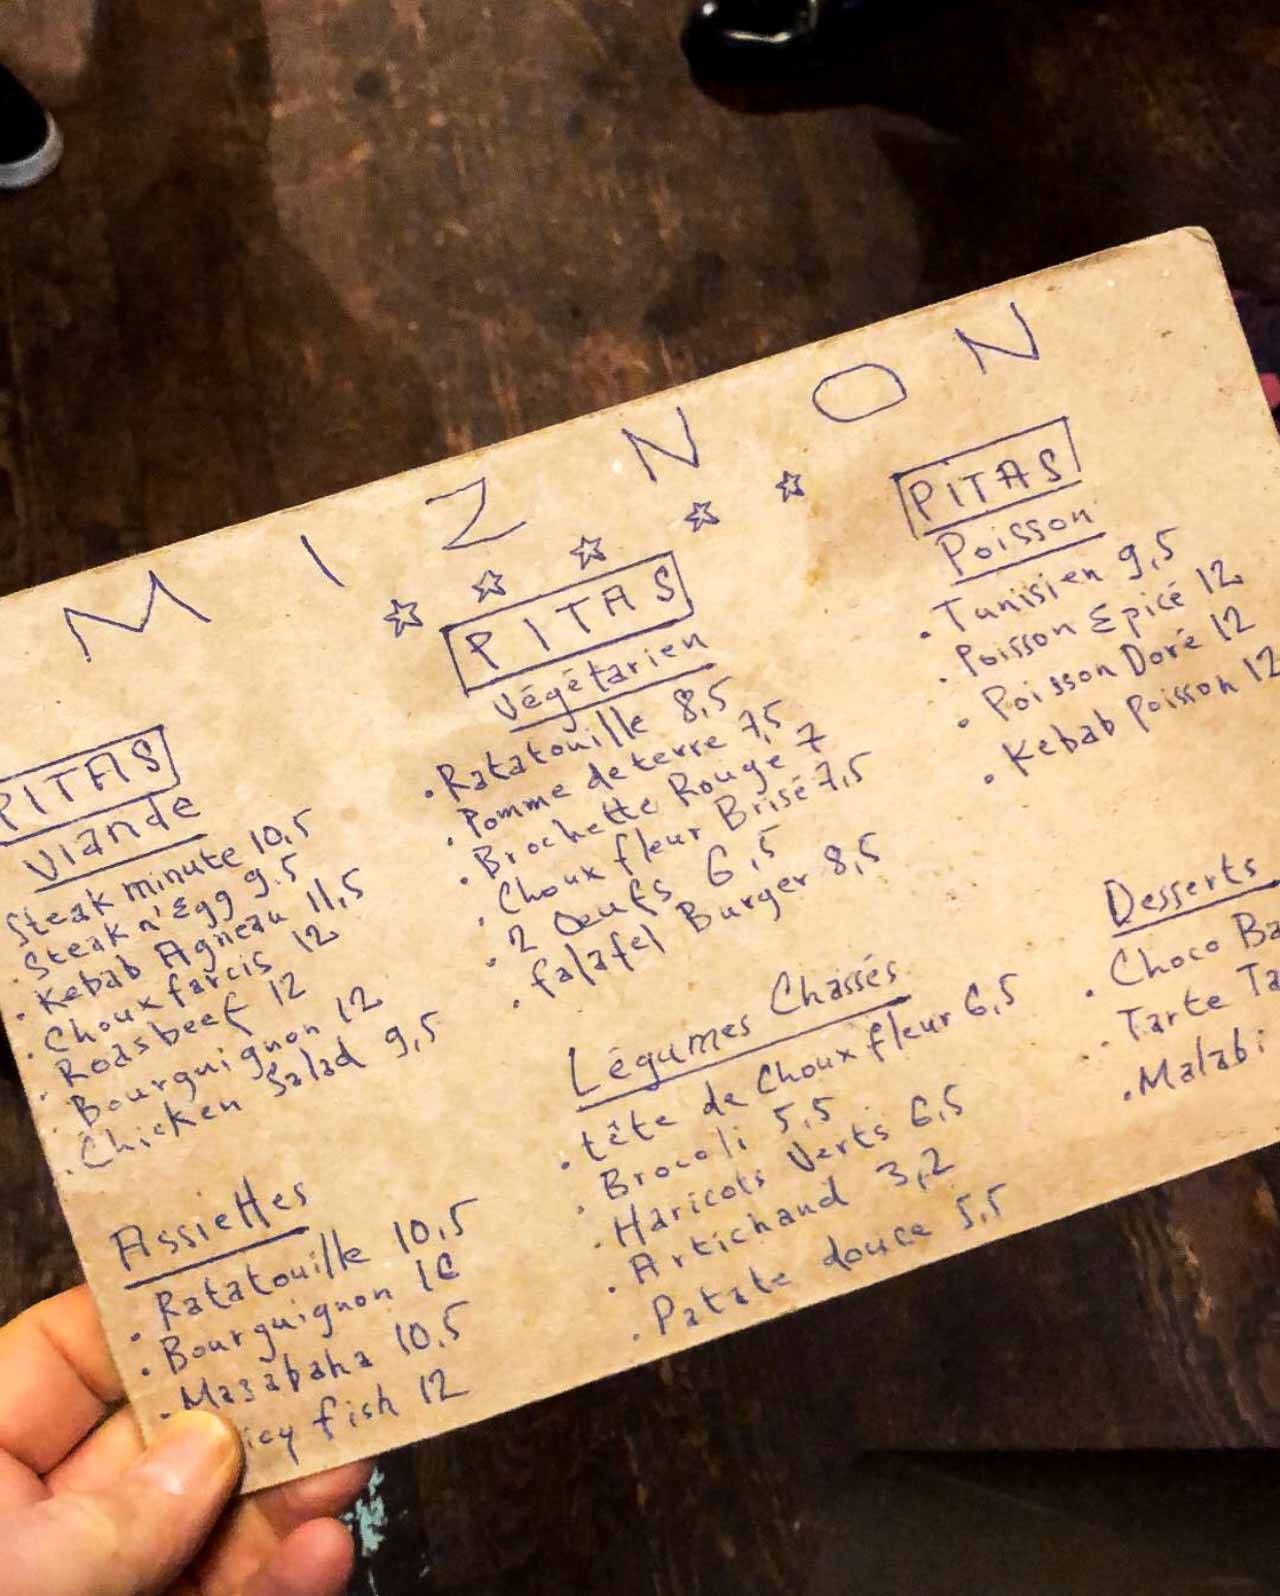 MIZNON
PITAS
Viande
Steak minute 10,5
Steak n' Egg 9.5
Kebab Agneau 11,5
Choux farcis 12
Roasbeef 12
Bourguignon 12
Chicken Salad 9,5
Assiettes
Ratatouille 10,5
Bourguignon
Masabaha 10,5
icy fish 12
PITAS
Végétarien
Ratatouille 8,5
Pomme de terre 7,5
Brochette Rouge 7
Choux fleur Brisé 7,5
2 Oeufs 6,5
falafel Burger 8,5
Légumes Chassés
tête de Choux fleur 6,5
Brocoli 5,5
Haricots Verts 6,5
Artichaud 3,2
Patate douce 5,5
PITAS
Poisson
Tunisien 9,5
Poisson Epicé 12
Poisson Doré 12
Kebab Poisson 12
Desserts
Choco Ba
Tarte Ta
Malabi